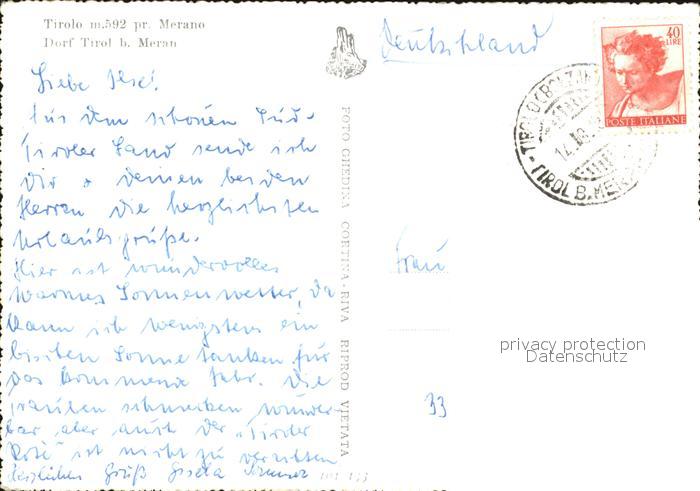 Tirolo m.592 pr. Merano
Dorf Tirol b. Meran
Liebe Ilse!
Aus dem schönen Süd-
Tiroler Land sende ich
Dir + deinen beiden
Herren die herzlichsten
Urlaubsgrüße.
Hier ist wundervolles
warmes Sonnenwetter, da
kann ich wenigstens ein
bischen Sonne tanken für
das kommende Jahr. Die
Trauben schmecken wunder-
bar, aber auch der "Tiroler
Rote" ist nicht zu verachten
Herzlichen Gruß Gisela
FOTO GHEDINA CORTINA - RIVA RIPROD VIETATA
Deutschland
40
LIRE
POSTE ITALIANE
TIROLO (BOLZANO)
14.
TIROL B. MERAN
Frau
33
privacy protection
Datenschutz